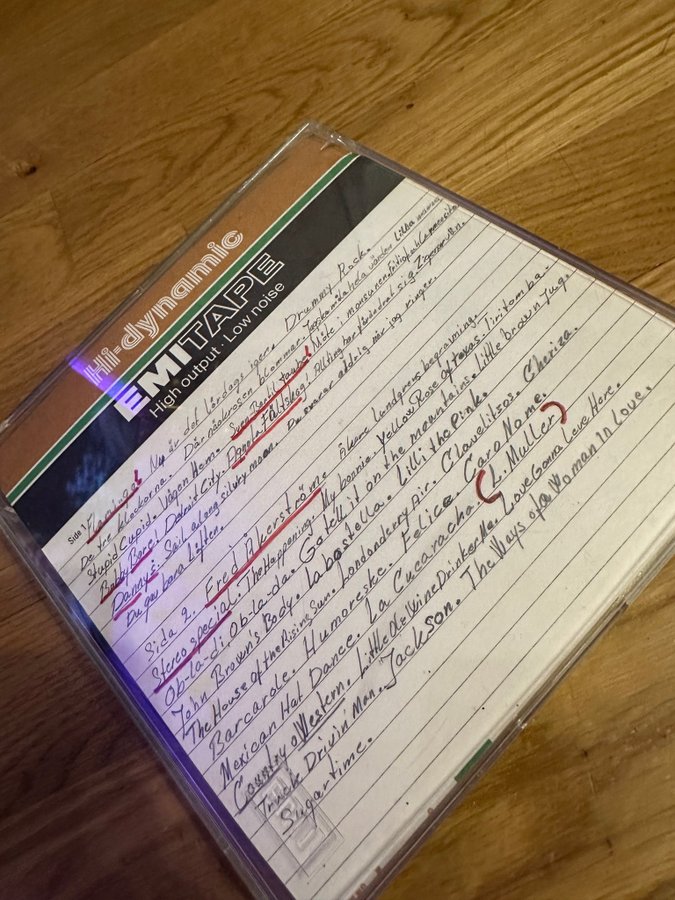 Hi-dynamic
EMITAPE
High output · Low noise
Side 1 Flamingo Nu är det lördag igen. Drummy Rock.
De tre klockorna. Där näckrosen blommar. hela världen Lilla
Stupid Cupid. Vägen Hem. Måte i monsunen. Fritiof och Carmencita
Bobby Bare! Detroit City. Allting har förändrat sig. Zigenarvän.
Danny's. Sail along silvery moon. Du svarar aldrig när jag ringer.
Du gav bara löften.
Sida 2. Fred Åkerström. Lundgrens begravning.
Stereo special. The Happening. My bonnie. Yellow Rose of texas. Tiritomba.
Ob-la-di. Ob-la-da. Go tell it on the mountains. Little brown jug.
John Brown's Body. Labostella. Lilli the Pink. Cheriza.
The House of the Rising Sun. Londonderry Air. Clowelitos.
Barcarole. Humoreske. Felice. Caro Nome.
Mexican Hat Dance. La Cucaracha. (L. Muller)
Country o Western. Little Ole Wine Drinker Me. Love Gonna Live Here.
Truck Drivin Man. Jackson. The Ways of a Woman In Love.
Sugartime.